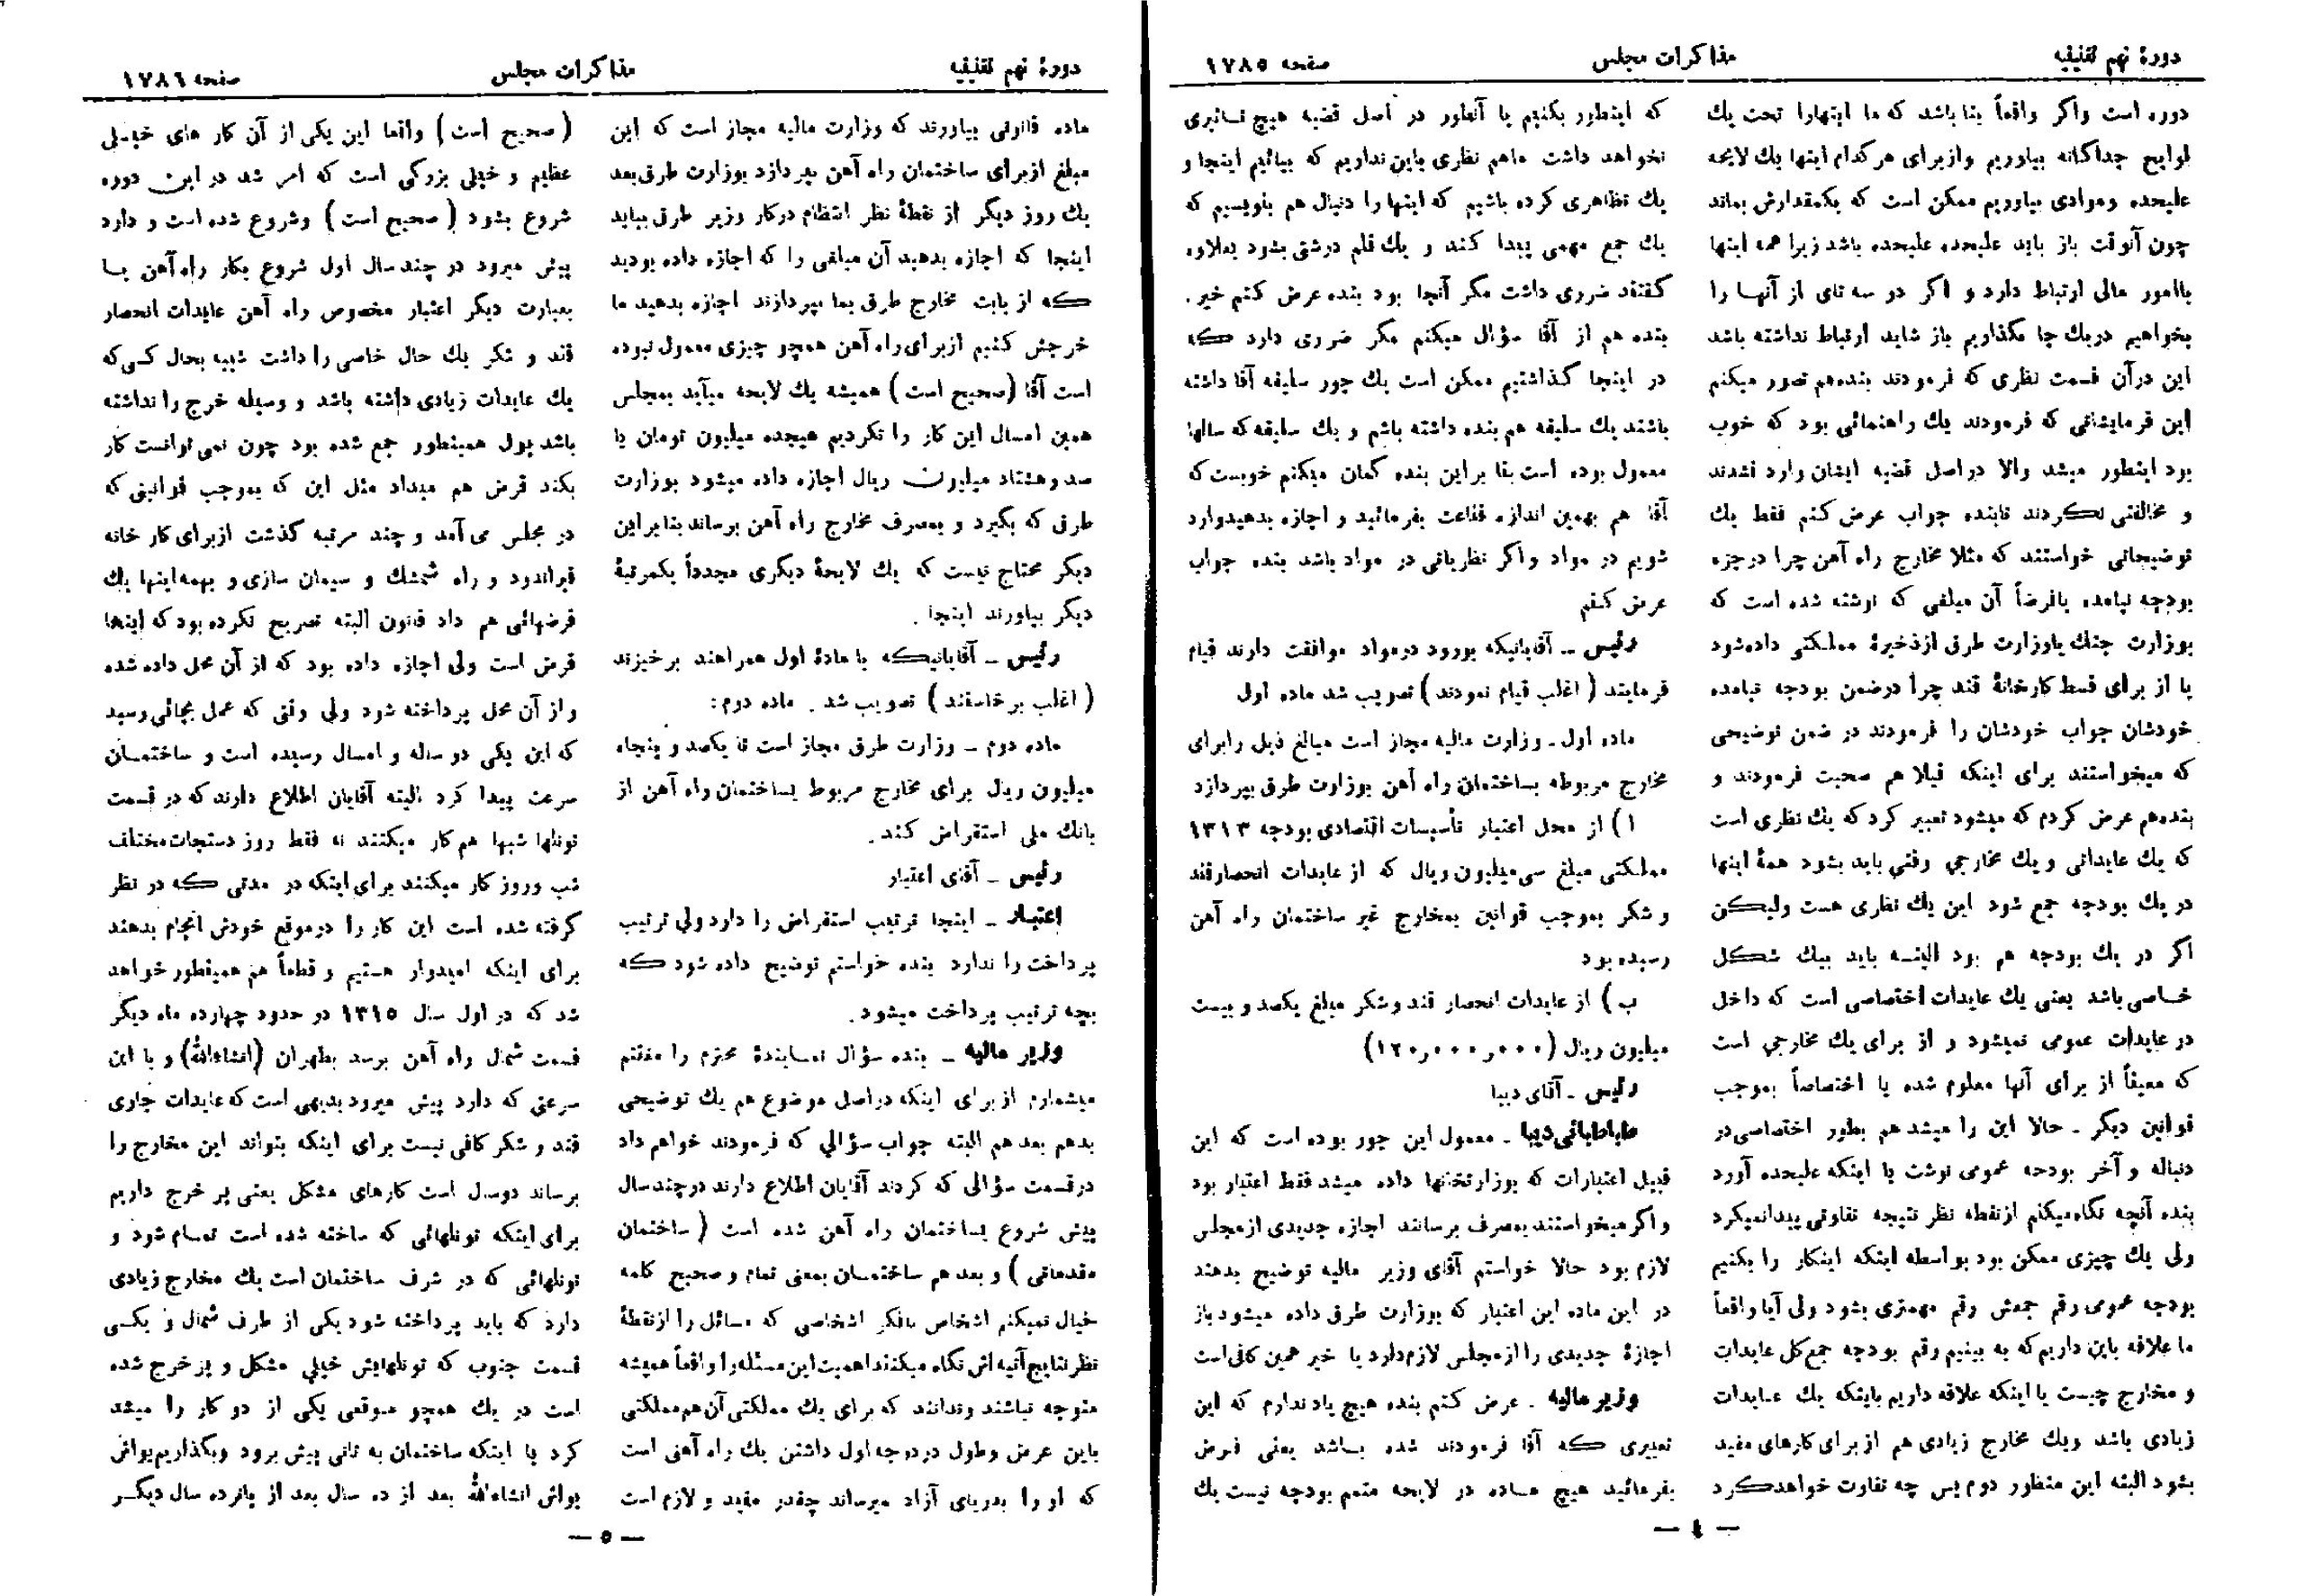 دورهٔ نهم تقنینیه
مذاکرات مجلس
صفحه ۱۷۸۵
دوره است واگر واقعاً بنا باشد که ما اینهارا تحت یك
لوایح جداگانه بیاوریم وازبرای هرکدام اینها یك لایحه
علیحده وموادی بیاوریم ممکن است که یکمقدارش بماند
چون آنوقت باز باید علیحده علیحده باشد زیرا همه اینها
باامور مالی ارتباط دارد و اگر دو سه تای از آنها را
بخواهیم دریك جا بگذاریم باز شاید ارتباط نداشته باشد
این درآن قسمت نظری که فرمودند بنده‌هم تصور میکنم
این فرمایشاتی که فرمودند یك راهنمائی بود که خوب
بود اینطور میشد والا دراصل قضیه ایشان وارد نشدند
و مخالفتی نکردند تابنده جواب عرض کنم فقط یك
توضیحاتی خواستند که مثلا مخارج راه آهن چرا درجزء
بودجه نیامده یافرضاً آن مبلغی که نوشته شده است که
بوزارت جنك یاوزارت طرق ازذخیرهٔ مملکتی داده‌شود
یا از برای قسط کارخانهٔ قند چرا درضمن بودجه نیامده
خودشان جواب خودشان را فرمودند در ضمن توضیحی
که میخواستند برای اینکه قبلا هم صحبت فرمودند و
بنده‌هم عرض کردم که میشود تعبیر کرد که یك نظری است
که یك عایداتی و یك مخارجی وقتی باید بشود همهٔ اینها
در یك بودجه جمع شود این یك نظری هست ولیکن
اگر در یك بودجه هم بود البته باید بیك شکل
خاصی باشد یعنی یك عایدات اختصاصی است که داخل
در عایدات عمومی نمیشود و از برای یك مخارجی است
که معیناً از برای آنها معلوم شده یا اختصاصاً بموجب
قوانین دیگر ـ حالا این را میشد هم بطور اختصاصی در
دنباله و آخر بودجه عمومی نوشت یا اینکه علیحده آورد
بنده آنچه نگاه‌میکنم ازنقطه نظر نتیجه تفاوتی پیدانمیکرد
ولی یك چیزی ممکن بود بواسطه اینکه اینکار را بکنیم
بودجه عمومی رقم جمعش رقم مهمتری بشود ولی آیا واقعاً
ما علاقه باین داریم که به بینیم رقم بودجه جمع کل عایدات
و مخارج چیست یا اینکه علاقه داریم باینکه یك عایدات
زیادی باشد ویك مخارج زیادی هم از برای کارهای مفید
بشود البته این منظور دوم پس چه تفاوت خواهدکرد
که اینطور بکنیم یا آنطور در اصل قضیه هیچ تأثیری
نخواهد داشت ماهم نظری باین نداریم که بیائیم اینجا و
یك تظاهری کرده باشیم که اینها را دنبال هم بنویسیم که
یك جمع مهمی پیدا کند و یك قلم درشتی بشود بعلاوه
گفتند ضرری داشت مگر آنجا بود بنده عرض کنم خیر.
بنده هم از آقا سؤال میکنم مگر ضرری دارد که
در اینجا گذاشتیم ممکن است یك جور سلیقه آقا داشته
باشند یك سلیقه هم بنده داشته باشم و یك سلیقه که سالها
معمول بوده است بنا براین بنده گمان میکنم خوبست که
آقا هم بهمین اندازه قناعت بفرمائید و اجازه بدهیدوارد
شویم در مواد واگر نظریاتی در مواد باشد بنده جواب
عرض کنم
رئیس ـ آقایانیکه بورود درمواد موافقت دارند قیام
فرمایند (اغلب قیام نمودند) تصویب شد ماده اول
ماده اول ـ وزارت مالیه مجاز است مبالغ ذیل رابرای
مخارج مربوطه بساختمان راه آهن بوزارت طرق بپردازد
ا) از محل اعتبار تأسیسات اقتصادی بودجه ۱۳۱۳
مملکتی مبلغ سی‌میلیون‌ریال که از عایدات انحصارقند
و شکر بموجب قوانین بمخارج غیر ساختمان راه آهن
رسیده بود
ب) از عایدات انحصار قند وشکر مبلغ یکصد و بیست
میلیون ریال (۱۲۰٫۰۰۰٫۰۰۰)
رئیس ـ آقای دیبا
طباطبائی‌دیبا ـ معمول این جور بوده است که این
قبیل اعتبارات که بوزارتخانها داده میشد فقط اعتبار بود
و اگر میخواستند بمصرف برسانند اجازه جدیدی ازمجلس
لازم بود حالا خواستم آقای وزیر مالیه توضیح بدهند
در این ماده این اعتبار که بوزارت طرق داده میشود باز
اجازهٔ جدیدی را ازمجلس لازم‌دارد یا خیر همین کافی‌است
وزیر مالیه ـ عرض کنم بنده هیچ یاد ندارم که این
تعبیری که آقا فرمودند شده باشد یعنی فرض
بفرمائید هیچ ماده در لایحه متمم بودجه نیست یك
— ٤ —
دورهٔ نهم تقنینیه
مذاکرات مجلس
صفحه ۱۷۸٦
ماده قانونی بیاورند که وزارت مالیه مجاز است که این
مبلغ ازبرای ساختمان راه آهن بپردازد بوزارت طرق‌بعد
یك روز دیگر از نقطهٔ نظر انتظام درکار وزیر طرق بیاید
اینجا که اجازه بدهید آن مبلغی را که اجازه داده بودید
که از بابت مخارج طرق بما بپردازند اجازه بدهید ما
خرجش کنیم ازبرای راه آهن همچو چیزی معمول نبوده
است آقا (صحیح است) همیشه یك لایحه میآید بمجلس
همین امسال این کار را نکردیم هیجده میلیون تومان یا
صد وهشتاد میلیون ریال اجازه داده میشود بوزارت
طرق که بگیرد و بمصرف مخارج راه آهن برساند بنابراین
دیگر محتاج نیست که یك لایحهٔ دیگری مجدداً یکمرتبهٔ
دیگر بیاورند اینجا.
رئیس ـ آقایانیکه با مادهٔ اول همراهند برخیزند
(اغلب برخاستند) تصویب شد. ماده دوم:
ماده دوم ـ وزارت طرق مجاز است تا یکصد و پنجاه
میلیون ریال برای مخارج مربوط بساختمان راه آهن از
بانك ملی استقراض کند.
رئیس ـ آقای اعتبار
اعتبار ـ اینجا ترتیب استقراض را دارد ولی ترتیب
پرداخت را ندارد بنده خواستم توضیح داده شود که
بچه ترتیب پرداخت میشود.
وزیر مالیه ـ بنده سؤال نمایندهٔ محترم را مغتنم
میشمارم ازبرای اینکه دراصل موضوع هم یك توضیحی
بدهم بعد هم البته جواب سؤالی که فرمودند خواهم داد
درقسمت سؤالی که کردند آقایان اطلاع دارند درچند سال
پیش شروع بساختمان راه آهن شده است (ساختمان
مقدماتی) و بعد هم ساختمان بمعنی تمام و صحیح کلمه
خیال نمیکنم اشخاص بافکر اشخاصی که مسائل را ازنقطهٔ
نظر نتایج آتیه‌اش نگاه میکننداهمیت این مسئله‌را واقعاً همیشه
متوجه نباشند وندانند که برای یك مملکتی آن هم مملکتی
باین عرض وطول دردرجه اول داشتن یك راه آهنی است
که او را بدریای آزاد میرساند چقدر مفید و لازم است
(صحیح است) واقعا این یکی از آن کار های خیلی
عظیم و خیلی بزرگی است که امر شد در این دوره
شروع بشود (صحیح است) وشروع شده است و دارد
پیش میرود در چند سال اول شروع بکار راه آهن یا
بعبارت دیگر اعتبار مخصوص راه آهن عایدات انحصار
قند و شکر یك حال خاصی را داشت شبیه بحال کسی که
یك عایدات زیادی داشته باشد و وسیله خرج را نداشته
باشد پول همینطور جمع شده بود چون نمی توانست کار
بکند قرض هم میداد مثل این که بموجب قوانینی که
در مجلس می آمد و چند مرتبه گذشت ازبرای کار خانه
قیراندود و راه شمشك و سیمان سازی و بهمه‌اینها یك
قرضهائی هم داد قانون البته تصریح نکرده بود که اینها
قرض است ولی اجازه داده بود که از آن محل داده شده
و از آن محل پرداخته شود ولی وقتی که عمل بجائی رسید
که این یکی دو ساله و امسال رسیده است و ساختمان
سرعت پیدا کرد البته آقایان اطلاع دارند که در قسمت
تونلها شبها هم کار میکنند نه فقط روز دستجات مختلف
شب وروز کار میکنند برای اینکه در مدتی که در نظر
گرفته شده است این کار را درموقع خودش انجام بدهند
برای اینکه امیدوار هستیم و قطعاً هم همینطور خواهد
شد که در اول سال ۱۳۱۵ در حدود چهارده ماه دیگر
قسمت شمال راه آهن برسد بطهران (انشاءالله) و با این
سرعتی که دارد پیش میرود بدیهی است که عایدات جاری
قند و شکر کافی نیست برای اینکه بتواند این مخارج را
برساند دوسال است کارهای مشکل یعنی پر خرج داریم
برای اینکه تونلهائی که ساخته شده است تمام شود و
تونلهائی که در شرف ساختمان است یك مخارج زیادی
دارد که باید پرداخته شود یکی از طرف شمال و یکی
قسمت جنوب که تونلهایش خیلی مشکل و پرخرج شده
است در یك همچو موقعی یکی از دو کار را میشد
کرد یا اینکه ساختمان به تانی پیش برود وبگذاریم یواش
یواش انشاءالله بعد از ده سال بعد از پانزده سال دیگر
— ٥ —